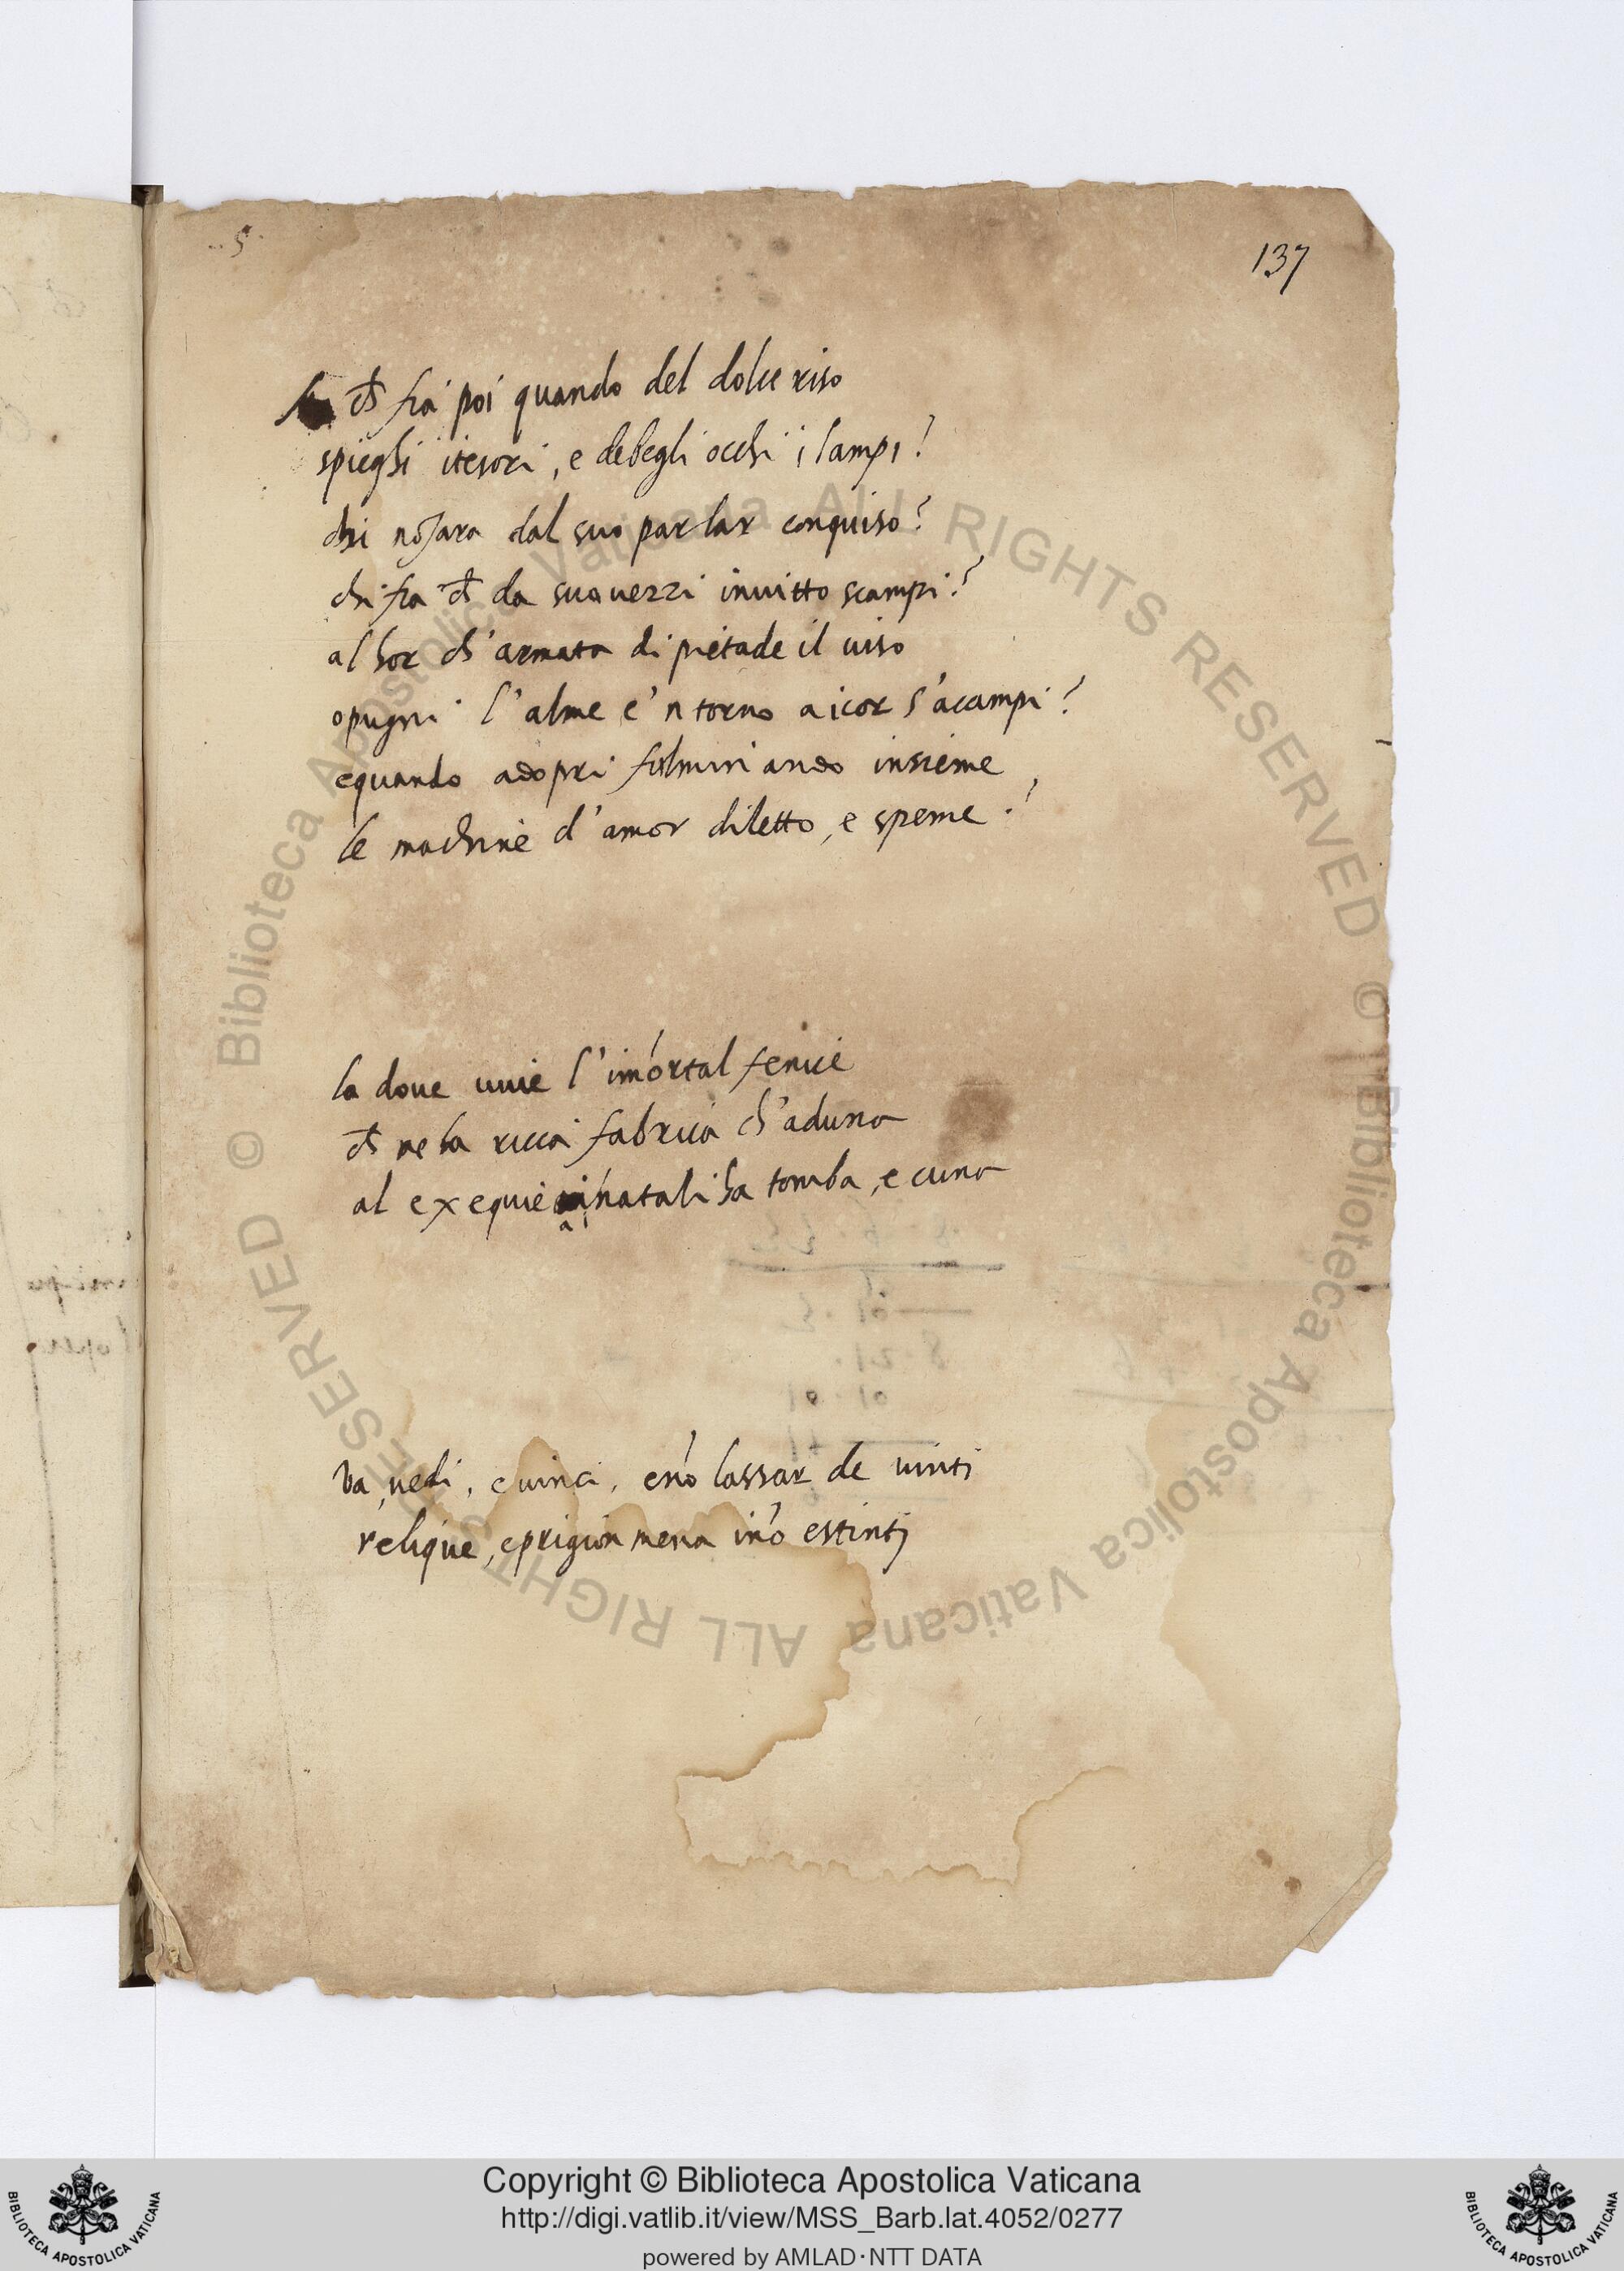 137
ch̃ fia poi quando del dolce riso
spieghi i tesori, e de begli occhi i lampi?
chi nõ sara dal suo parlar conquiso?
chi fia ch̃ da suoi vezzi invitto scampi?
al hor ch' armata di pietade il uiso
opugni l'alme e'ntorno a i cor s'acampi?
e quando adopri fulminando insieme
le machine d'amor diletto, e speme?
la doue uiue l'imortal fenice
ch̃ ne la ricca fabrica ch'aduna
al exequie ai natali ha tomba, e cuna
va, uedi, e uinci, e nõ lassar de uinti
relique, e prigion mena i nõ estinti
© Biblioteca Apostolica Vaticana ALL RIGHTS RESERVED © Biblioteca Apostolica Vaticana ALL RIGHTS RESERVED
Copyright © Biblioteca Apostolica Vaticana
http://digi.vatlib.it/view/MSS_Barb.lat.4052/0277
powered by AMLAD·NTT DATA
BIBLIOTECA APOSTOLICA VATICANA
BIBLIOTECA APOSTOLICA VATICANA